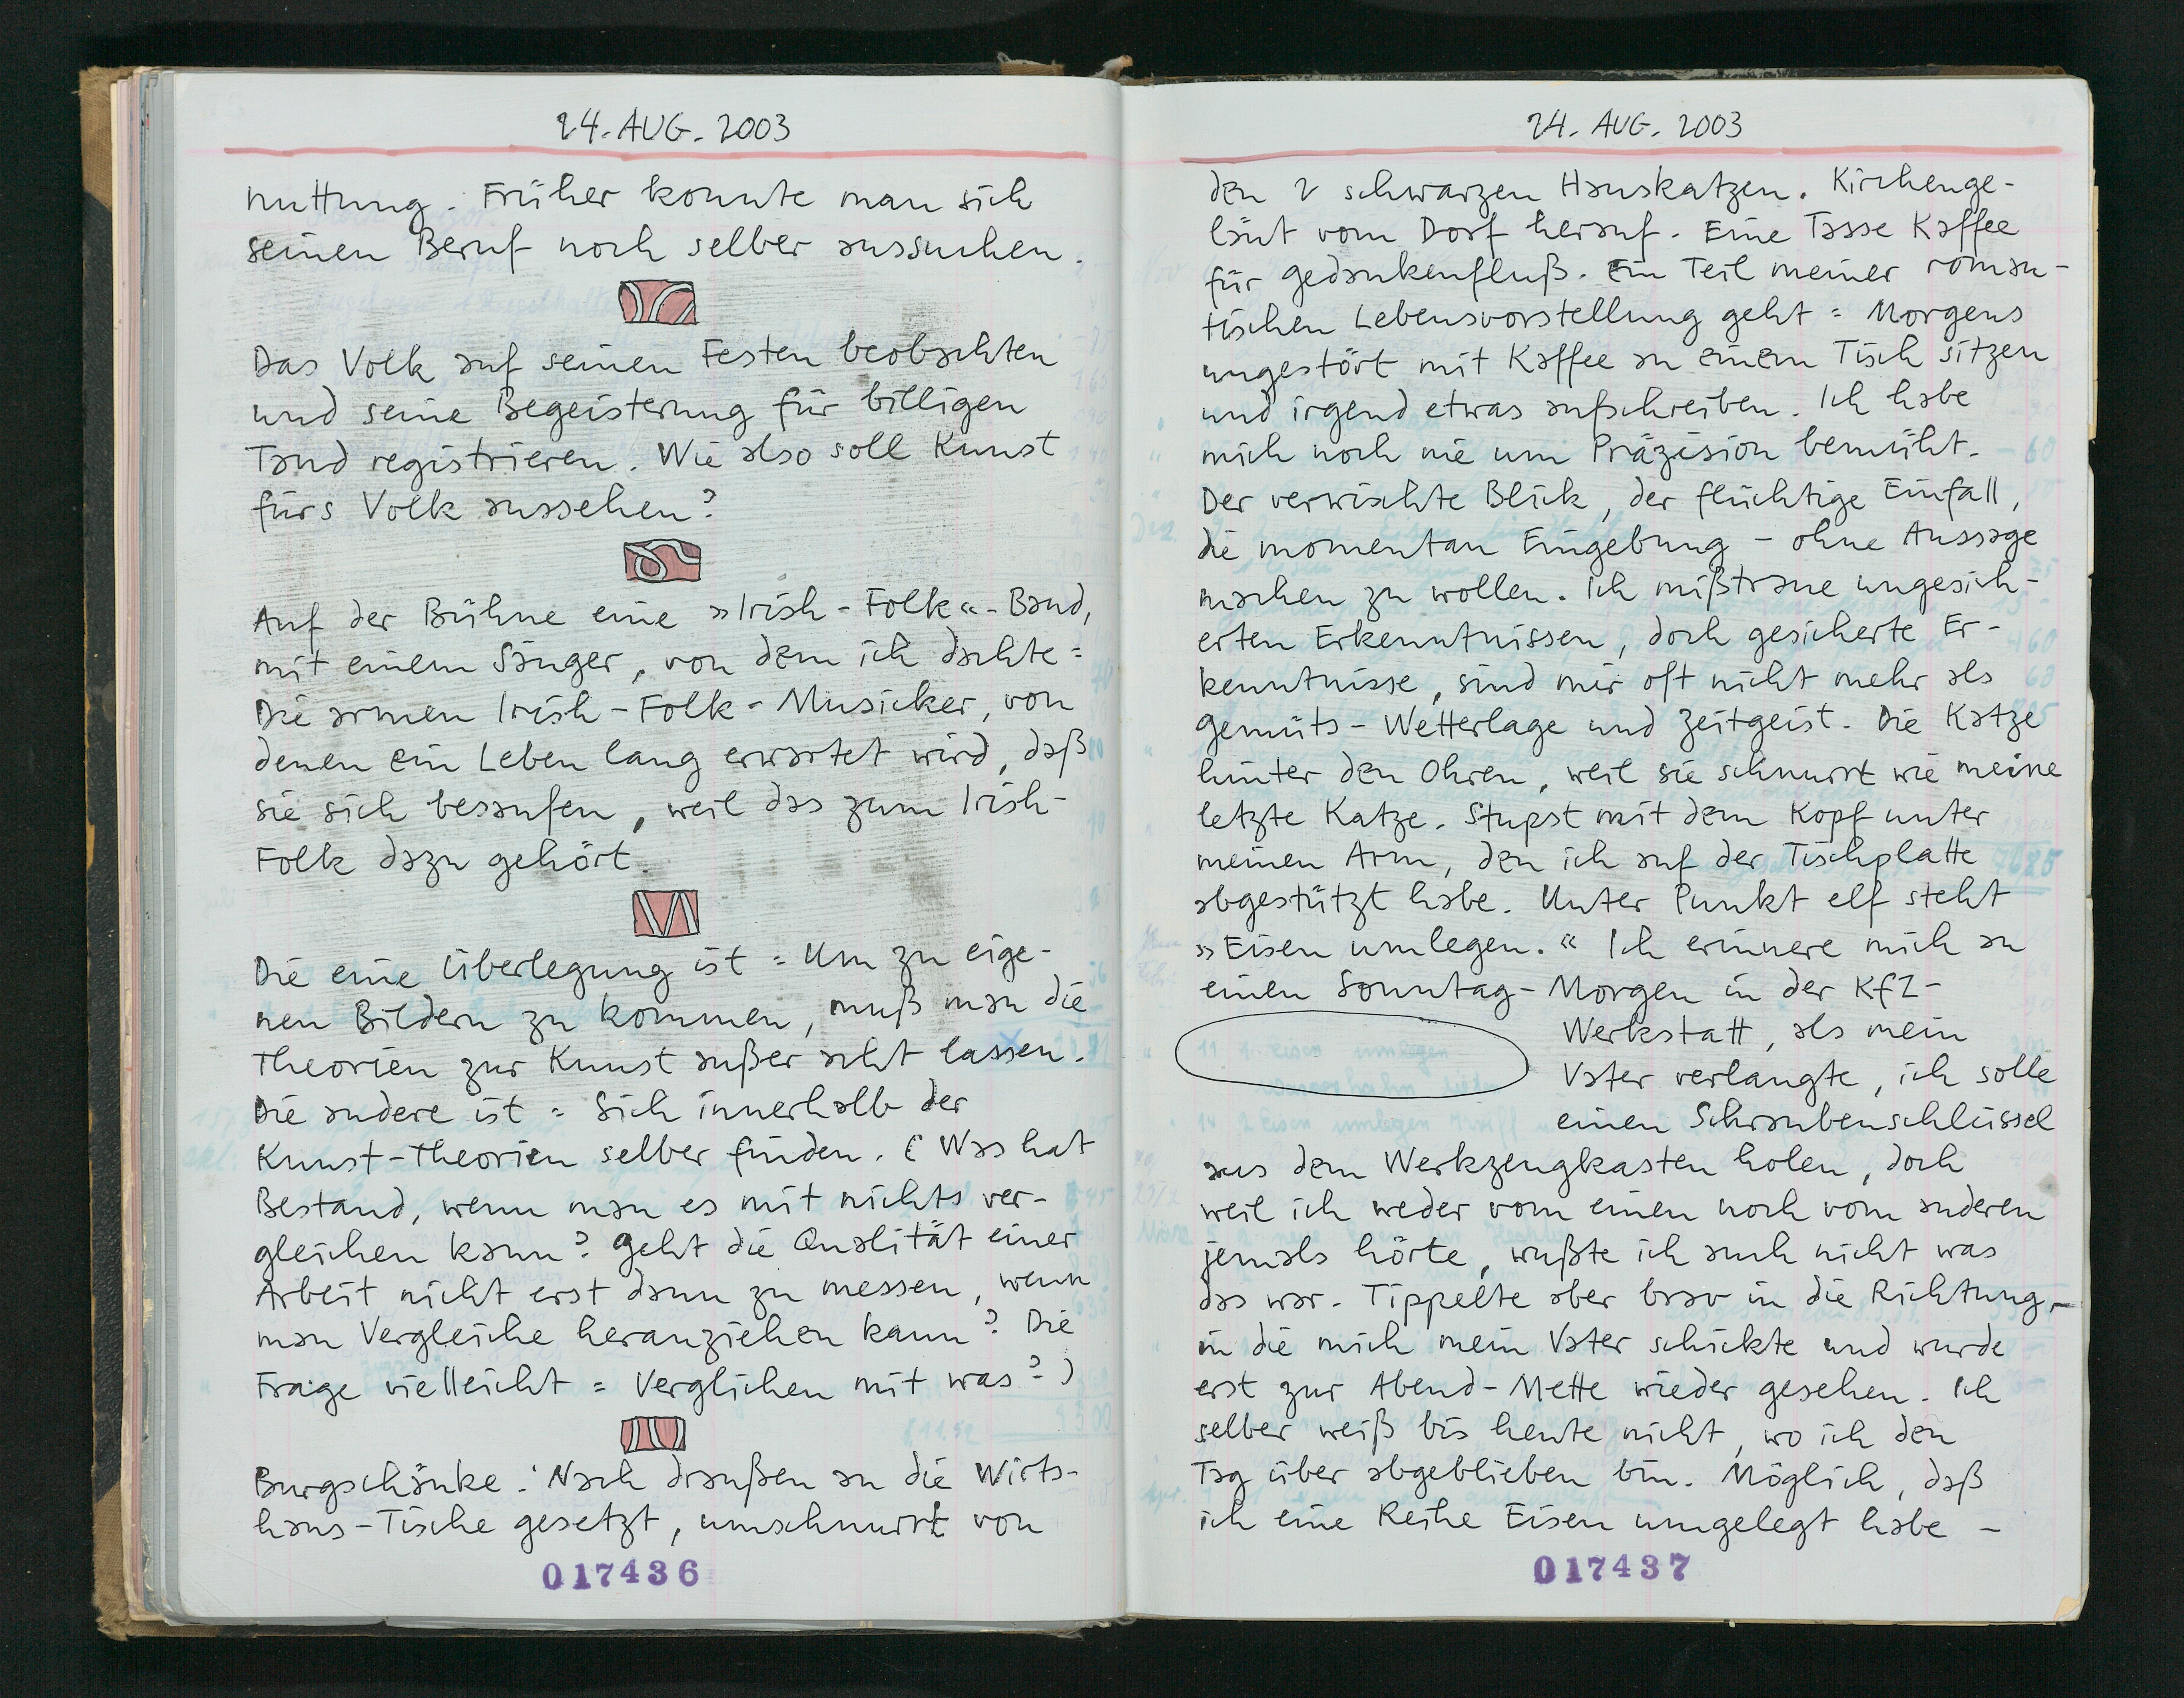 24. AUG. 2003
nuttung. Früher konnte man sich
seinen Beruf noch selber aussuchen.
Das Volk auf seinen Festen beobachten
und seine Begeisterung für billigen
Tand registrieren. Wie also soll Kunst
fürs Volk aussehen?
Auf der Bühne eine »Irish-Folk«-Band,
mit einem Sänger, von dem ich dachte:
Die armen Irish-Folk-Musicker, von
denen ein Leben lang erwartet wird, daß
sie sich besaufen, weil das zum Irish-
Folk dazu gehört.
Die eine Überlegung ist: Um zu eige-
nen Bildern zu kommen, muß man die
Theorien zur Kunst außer acht lassen.
Die andere ist: Sich innerhalb der
Kunst-Theorien selber finden. (Was hat
Bestand, wenn man es mit nichts ver-
gleichen kann? Geht die Qualität einer
Arbeit nicht erst dann zu messen, wenn
man Vergleiche heranziehen kann? Die
Frage vielleicht: Verglichen mit was?)
Burgschänke: Nach draußen an die Wirts-
haus-Tische gesetzt, umschnurrt von
017436
24. AUG. 2003
den 2 schwarzen Hauskatzen. Kirchenge-
läut vom Dorf herauf. Eine Tasse Kaffee
für Gedankenfluß. Ein Teil meiner roman-
tischen Lebensvorstellung geht: Morgens
ungestört mit Kaffee an einem Tisch sitzen
und irgend etwas aufschreiben. Ich habe
mich noch nie um Präzision bemüht.
Der verwischte Blick, der flüchtige Einfall,
die momentan Eingebung – ohne Aussage
machen zu wollen. Ich mißtraue ungesich-
erten Erkenntnissen, doch gesicherte Er-
kenntnisse, sind mir oft nicht mehr als
Gemüts-Wetterlage und Zeitgeist. Die Katze
hinter den Ohren, weil sie schnurrt wie meine
letzte Katze. Stupst mit dem Kopf unter
meinen Arm, den ich auf der Tischplatte
abgestützt habe. Unter Punkt elf steht
»Eisen umlegen.« Ich erinnere mich an
einen Sonntag-Morgen in der KfZ-
Werkstatt, als mein
11 1 Eisen umlegen
Vater verlangte, ich solle
einen Schraubenschlüssel
aus dem Werkzeugkasten holen, doch
weil ich weder vom einen noch vom anderen
jemals hörte, wußte ich auch nicht was
das war. Tippelte aber brav in die Richtung,
in die mich mein Vater schickte und wurde
erst zur Abend-Mette wieder gesehen. Ich
selber weiß bis heute nicht, wo ich den
Tag über abgeblieben bin. Möglich, daß
ich eine Reihe Eisen umgelegt habe –
017437